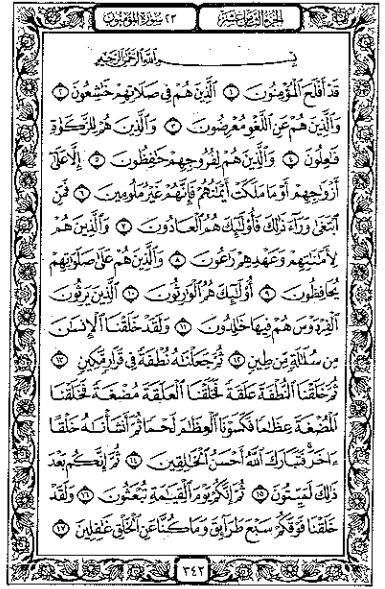 الجزء الثامن عشر
٢٣ سورة المؤمنون
بِسْمِ ٱللَّهِ ٱلرَّحْمَٰنِ ٱلرَّحِيمِ
قَدْ أَفْلَحَ ٱلْمُؤْمِنُونَ ١ ٱلَّذِينَ هُمْ فِى صَلَاتِهِمْ خَٰشِعُونَ ٢
وَٱلَّذِينَ هُمْ عَنِ ٱللَّغْوِ مُعْرِضُونَ ٣ وَٱلَّذِينَ هُمْ لِلزَّكَوٰةِ
فَٰعِلُونَ ٤ وَٱلَّذِينَ هُمْ لِفُرُوجِهِمْ حَٰفِظُونَ ٥ إِلَّا عَلَىٰٓ
أَزْوَٰجِهِمْ أَوْ مَا مَلَكَتْ أَيْمَٰنُهُمْ فَإِنَّهُمْ غَيْرُ مَلُومِينَ ٦ فَمَنِ
ٱبْتَغَىٰ وَرَآءَ ذَٰلِكَ فَأُو۟لَٰٓئِكَ هُمُ ٱلْعَادُونَ ٧ وَٱلَّذِينَ هُمْ
لِأَمَٰنَٰتِهِمْ وَعَهْدِهِمْ رَٰعُونَ ٨ وَٱلَّذِينَ هُمْ عَلَىٰ صَلَوَٰتِهِمْ
يُحَافِظُونَ ٩ أُو۟لَٰٓئِكَ هُمُ ٱلْوَٰرِثُونَ ١٠ ٱلَّذِينَ يَرِثُونَ
ٱلْفِرْدَوْسَ هُمْ فِيهَا خَٰلِدُونَ ١١ وَلَقَدْ خَلَقْنَا ٱلْإِنسَٰنَ
مِن سُلَٰلَةٍ مِّن طِينٍ ١٢ ثُمَّ جَعَلْنَٰهُ نُطْفَةً فِى قَرَارٍ مَّكِينٍ ١٣
ثُمَّ خَلَقْنَا ٱلنُّطْفَةَ عَلَقَةً فَخَلَقْنَا ٱلْعَلَقَةَ مُضْغَةً فَخَلَقْنَا
ٱلْمُضْغَةَ عِظَٰمًا فَكَسَوْنَا ٱلْعِظَٰمَ لَحْمًا ثُمَّ أَنشَأْنَٰهُ خَلْقًا
ءَاخَرَ ۚ فَتَبَارَكَ ٱللَّهُ أَحْسَنُ ٱلْخَٰلِقِينَ ١٤ ثُمَّ إِنَّكُم بَعْدَ
ذَٰلِكَ لَمَيِّتُونَ ١٥ ثُمَّ إِنَّكُمْ يَوْمَ ٱلْقِيَٰمَةِ تُبْعَثُونَ ١٦ وَلَقَدْ
خَلَقْنَا فَوْقَكُمْ سَبْعَ طَرَآئِقَ وَمَا كُنَّا عَنِ ٱلْخَلْقِ غَٰفِلِينَ ١٧
٣٤٢